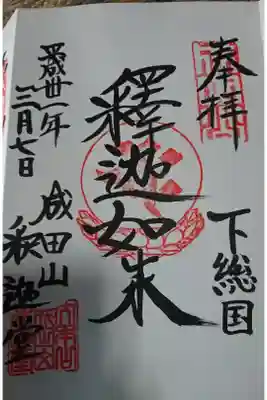 奉拝
下総国
釋迦如来
成田山
釈迦堂
平成卅一年
三月七日